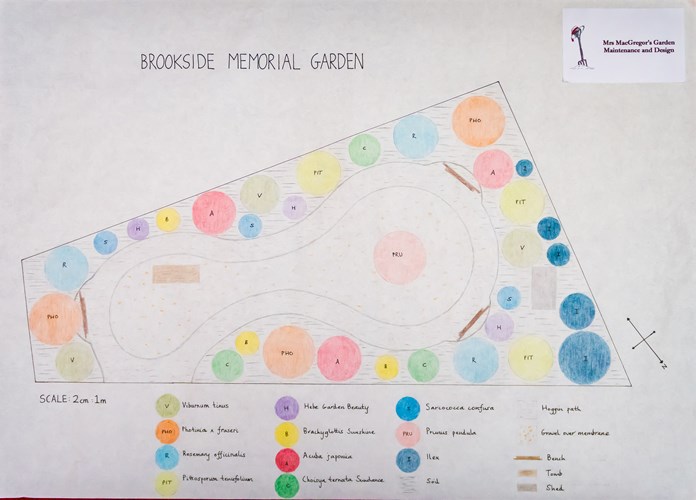 Mrs MacGregor's Garden
Maintenance and Design
BROOKSIDE MEMORIAL GARDEN
PHO
R
C
A
S
PIT
PIT
V
H
A
S
B
H
S
V
R
PRU
PHO
V
S
H
I
I
C
B
PHO
A
B
C
R
PIT
N
SCALE: 2cm : 1m
V Viburnum tinus
H Hebe Garden Beauty
S Sarcococca confusa
Hoggin path
PHO Photinia x fraseri
B Brachyglottis Sunshine
PRU Prunus pendula
Gravel over membrane
R Rosemary officinalis
A Acuba japonica
I Ilex
Bench
PIT Pittosporum tenuifolium
C Choisya ternata Sundance
Soil
Tomb
Shed